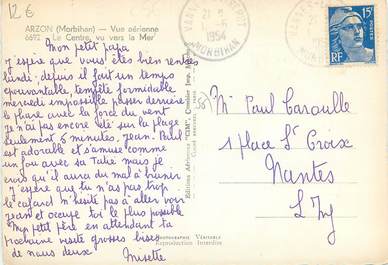 12 €
ARZON (Morbihan) - Vue aérienne
6692 Le Centre, vu vers la Mer
Mon petit papa
J'espère que vous êtes bien rentrés
lundi, depuis il fait un temps
épouvantable, tempête formidable
mercredi impossible passer derrière
le phare avec la force du vent
je n'ai pas encore été sur la plage
seulement 5 minutes, Jean. Paul
est adorable et s'amuse comme
un fou avec sa Tatie mais je
crois qu'il aura du mal à brunir
J'espère que tu n'as pas trop
le cafard n'hésite pas à aller voir
Jean et occupe toi le plus possible
Mon petit père en attendant ta
prochaine visite grosses bises
de nous deux. Misette
Editions Aériennes "CIM"
PHOTOGRAPHIE VÉRITABLE
Reproduction Interdite
21 H
1954
MORBIHAN
15F
RF
56
Mr Paul Caroulle
1 place St Croix
Nantes